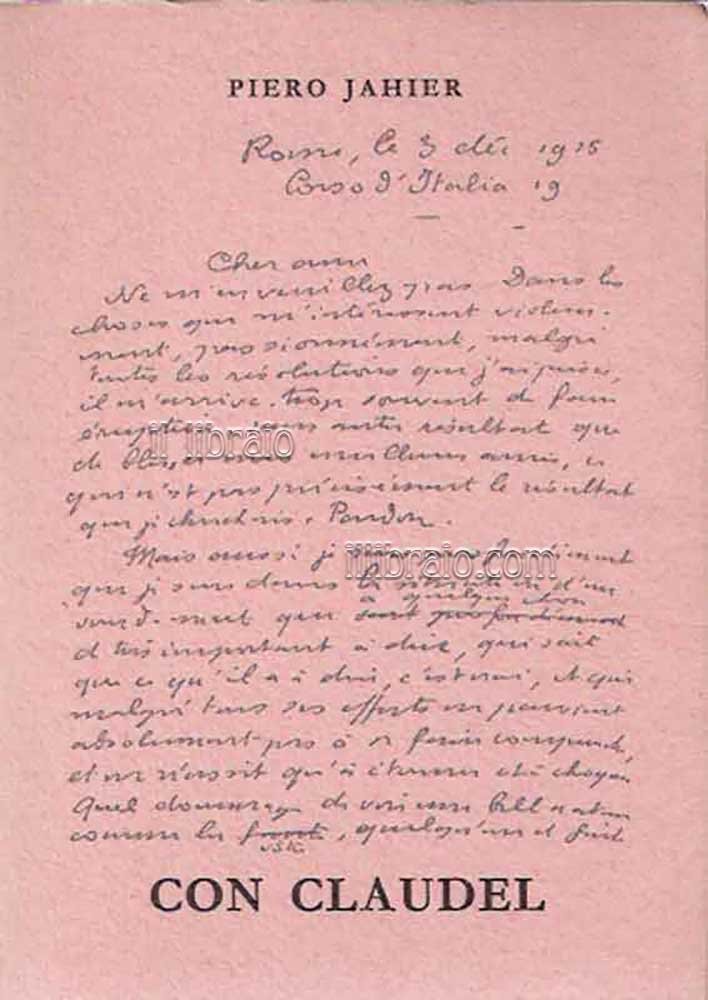 PIERO JAHIER
Rome, le 3 déc 1915
Corso d'Italia 19
Cher ami
Ne m'en veuillez pas Dans les
choses qui m'intéressent violem-
ment, passionnément, malgré
toutes les résolutions que j'ai prises,
il m'arrive trop souvent de faire
éruption sans autre résultat que
de blesser mes meilleurs amis, ce
qui n'est pas précisément le résultat
que je cherchais. Pardon.
il libraio
Mais aussi je
illibraio.com
que je suis dans la d'un
à quelque chose
sourd-muet qui
d très important à dire, qui sait
que ce qu'il a à dire, c'est vrai, et qui
malgré tous ses efforts ne parvient
absolument pas à se faire comprendre,
et ne réussit qu'à étonner et à choquer
Quel dommage de voir une belle nation
comme la , quelqu'un et
CON CLAUDEL